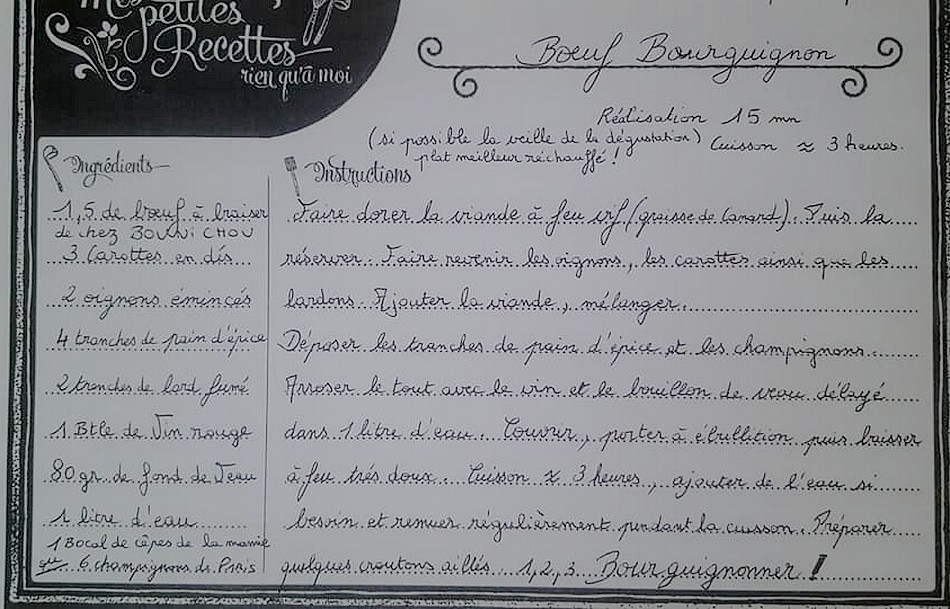 Mes petites
Recettes
rien qu'à moi
Bœuf Bourguignon
Réalisation 15 mn
(si possible la veille de la dégustation) Cuisson ≈ 3 heures.
plat meilleur réchauffé !
Ingrédients
1,5 de bœuf à braiser
de chez BOUNICHOU
3 Carottes en dés
2 oignons émincés
4 tranches de pain d'épice
2 tranches de lard fumé
1 Btle de Vin rouge
80 gr de fond de Veau
1 litre d'eau
1 Bocal de cèpes de la mamie
ou 6 champignons de Paris
Instructions
Faire dorer la viande à feu vif (graisse de Canard). Puis la
réserver. Faire revenir les oignons, les carottes ainsi que les
lardons. Ajouter la viande, mélanger.
Déposer les tranches de pain d'épice et les champignons.
Arroser le tout avec le vin et le bouillon de veau délayé
dans 1 litre d'eau. Couvrir, porter à ébullition puis baisser
à feu trés doux. Cuisson ≈ 3 heures, ajouter de l'eau si
besoin et remuer régulièrement pendant la cuisson. Préparer
quelques croutons aillés. 1,2,3 Bourguignonner !